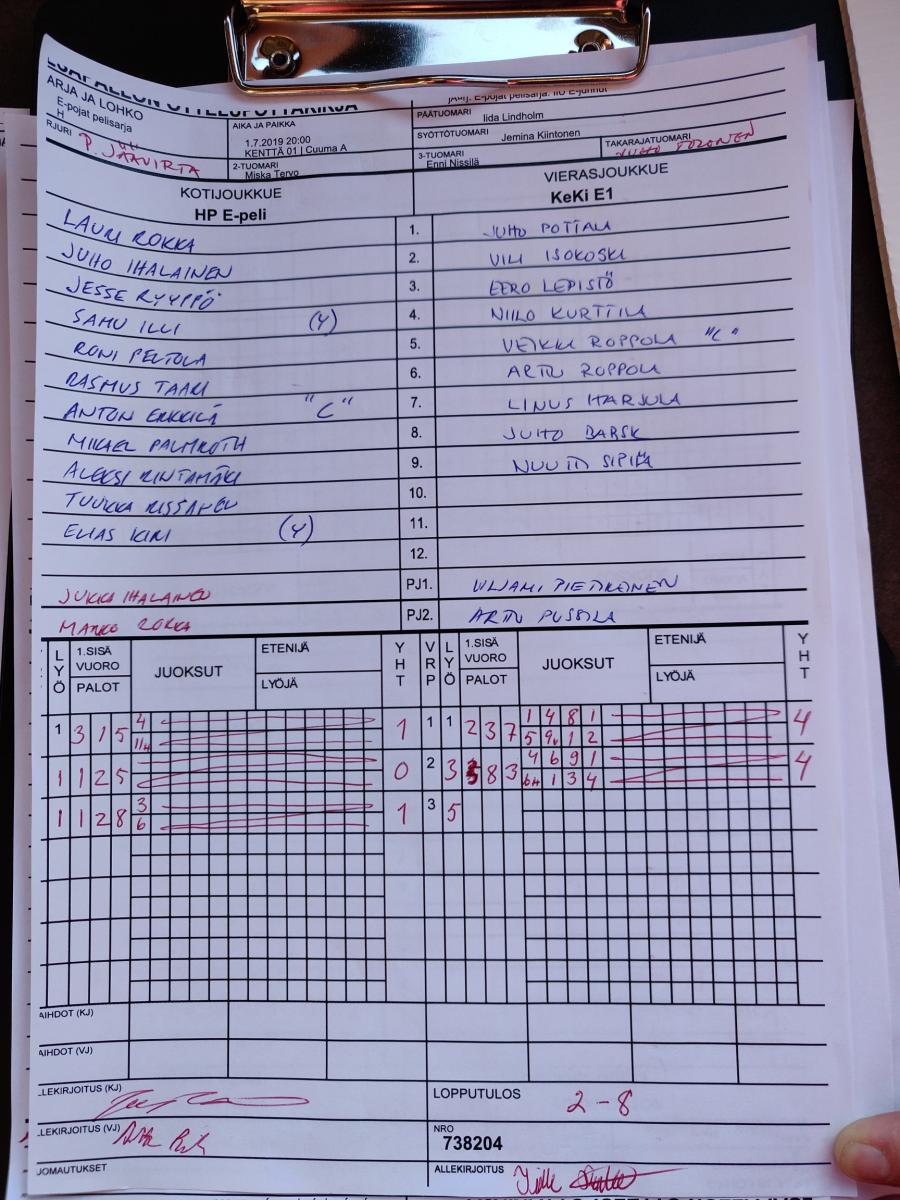 ARJA JA LOHKO
E-pojat pelisarja
H
RJURI
P. JÄÄVIRTA
AIKA JA PAIKKA
1.7.2019 20:00
KENTTÄ 01 | Cuuma A
2-TUOMARI
Miska Tervo
PÄÄTUOMARI
Iida Lindholm
SYÖTTÖTUOMARI
Jemina Kiintonen
3-TUOMARI
Enni Nissilä
TAKARAJATUOMARI
KOTIJOUKKUE
HP E-peli
VIERASJOUKKUE
KeKi E1
LAURI ROKKA 1. JUHO POTILA
JUHO IHALAINEN 2. VILI ISOKOSKI
JESSE RYYPPÖ 3. EERO LEPISTÖ
SAMU ILLI (Y) 4. NIILO KURTTILA
RONI PELTOLA 5. VEIKKO ROPPOLA "C"
RASMUS TAARI 6. ARTTU ROPPOLA
ANTON ERKKILÄ "C" 7. LINUS HARJULA
MIKAEL PALMROTH 8. JUHO BARSK
ALEKSI RINTAMÄKI 9. SIPILÄ
TUUKKA RISSANEN 10.
ELIAS KIRI (Y) 11.
12.
JUKKA IHALAINEN PJ1. ULJAMI PIETIKÄINEN
MARKO ROKKA PJ2. ARTTU PUSSILA
LYÖ 1.SISÄ VUORO PALOT JUOKSUT ETENIJÄ LYÖJÄ YHT VRP LYÖ 1.SISÄ VUORO PALOT JUOKSUT ETENIJÄ LYÖJÄ YHT
1 3 1 5 4 1 1 1 2 3 7 1 4 8 1 4
11H 5 9 1 2
1 1 2 5 0 2 3 5 8 3 4 6 9 1 4
6H 1 3 4
1 1 2 8 3 1 3 5
6
AIHDOT (KJ)
AIHDOT (VJ)
LLEKIRJOITUS (KJ)
LOPPUTULOS 2-8
LLEKIRJOITUS (VJ)
NRO
738204
UOMAUTUKSET
ALLEKIRJOITUS